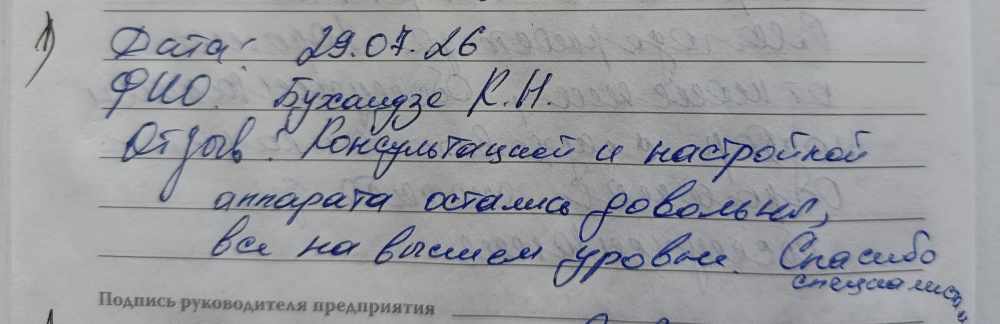 1)
Дата: 29.07.26
ФИО: Бухаидзе К.Н.
Отзыв: Консультацией и настройкой
аппарата остались довольны,
все на высшем уровне. Спасибо
специалистам
Подпись руководителя предприятия